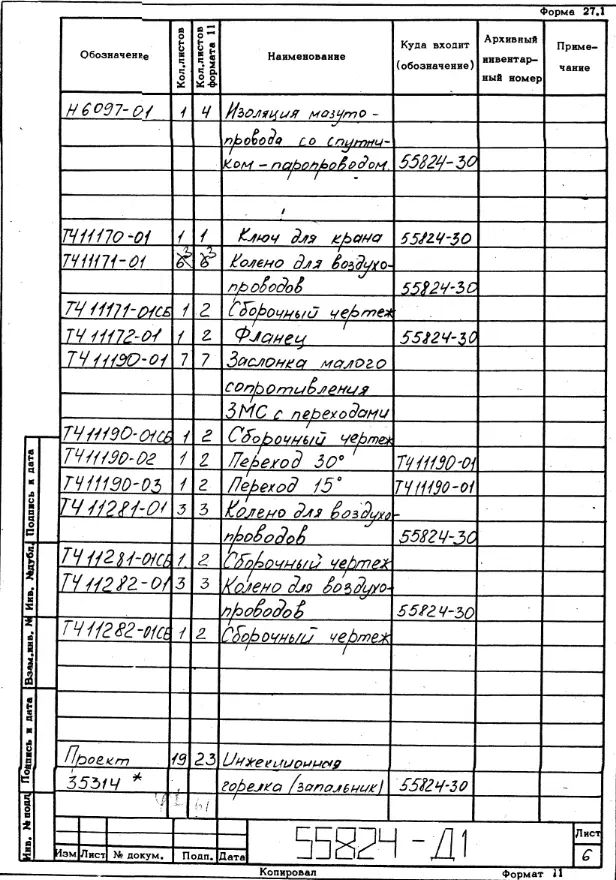 Форма 27.1
Обозначение Кол.листов Кол.листов формата 11 Наименование Куда входит (обозначение) Архивный инвентарный номер Примечание
Н6097-01 1 4 Изоляция мазуто-
провода со спутни-
ком-паропроводом. 55824-30
ТЧ11170-01 1 1 Ключ для крана 55824-30
ТЧ11171-01 3 3 Колено для воздухо-
проводов 55824-30
ТЧ11171-01СБ 1 2 Сборочный чертеж
ТЧ11172-01 1 2 Фланец 55824-30
ТЧ11190-01 7 7 Заслонка малого
сопротивления
ЗМС с переходами
ТЧ11190-01СБ 1 2 Сборочный чертеж
ТЧ11190-02 1 2 Переход 30° ТЧ11190-01
ТЧ11190-03 1 2 Переход 15° ТЧ11190-01
ТЧ11281-01 3 3 Колено для воздухо-
проводов 55824-30
ТЧ11281-01СБ 1 2 Сборочный чертеж
ТЧ11282-01 3 3 Колено для воздухо-
проводов 55824-30
ТЧ11282-01СБ 1 2 Сборочный чертеж
Проект 19 23 Инжекционная
35314 * горелка (запальник) 55824-30
Подпись и дата
Инв. №дубл.
Взам.инв. №
Подпись и дата
Инв. № подл
Изм Лист № докум. Подп. Дата
55824-Д1
Лист
6
Копировал Формат 11